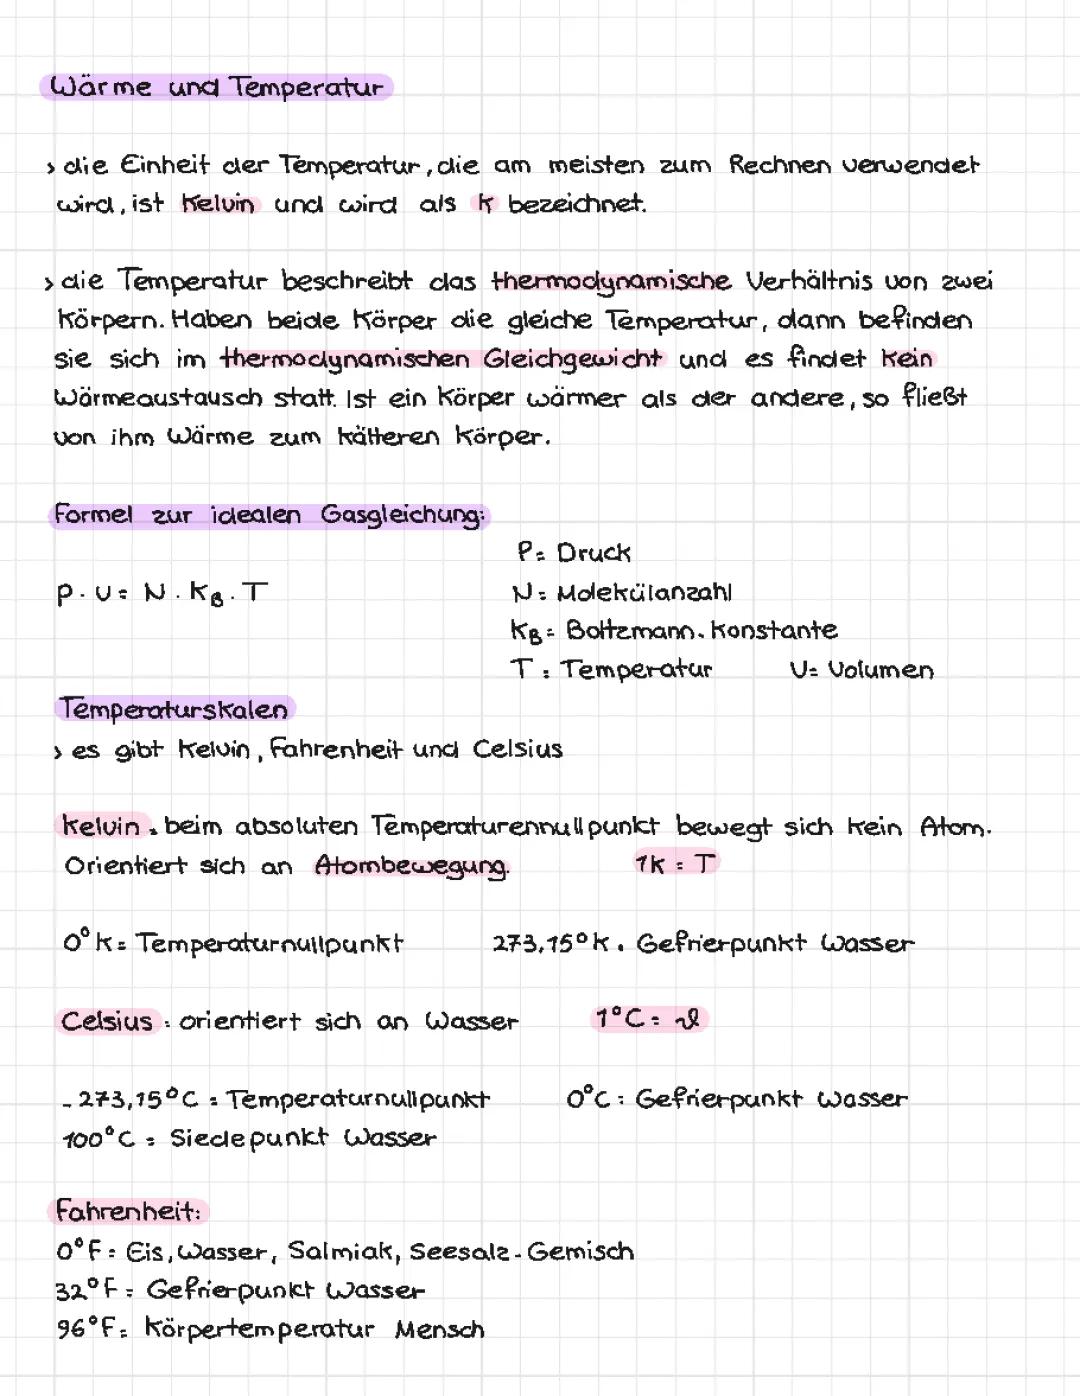 Wärme und Temperatur
› die Einheit der Temperatur, die am meisten zum Rechnen verwendet
wird, ist Kelvin und wird als K bezeichnet.
› die Temperatur beschreibt das thermodynamische Verhältnis von zwei
Körpern. Haben beide Körper die gleiche Temperatur, dann befinden
sie sich im thermodynamischen Gleichgewicht und es findet kein
Wärmeaustausch statt. Ist ein Körper wärmer als der andere, so fließt
von ihm Wärme zum kälteren Körper.
Formel zur idealen Gasgleichung:
P = Druck
p · V = N · KB · T
N = Molekülanzahl
KB = Boltzmann-Konstante
T = Temperatur V = Volumen
Temperaturskalen
› es gibt Kelvin, Fahrenheit und Celsius
Kelvin: beim absoluten Temperaturennullpunkt bewegt sich kein Atom.
Orientiert sich an Atombewegung. 1K = T
0°K = Temperaturnullpunkt 273,15°K = Gefrierpunkt Wasser
Celsius: orientiert sich an Wasser 1°C = ϑ
-273,15°C = Temperaturnullpunkt 0°C = Gefrierpunkt Wasser
100°C = Siedepunkt Wasser
Fahrenheit:
0°F = Eis, Wasser, Salmiak, Seesalz-Gemisch
32°F = Gefrierpunkt Wasser
96°F = Körpertemperatur Mensch